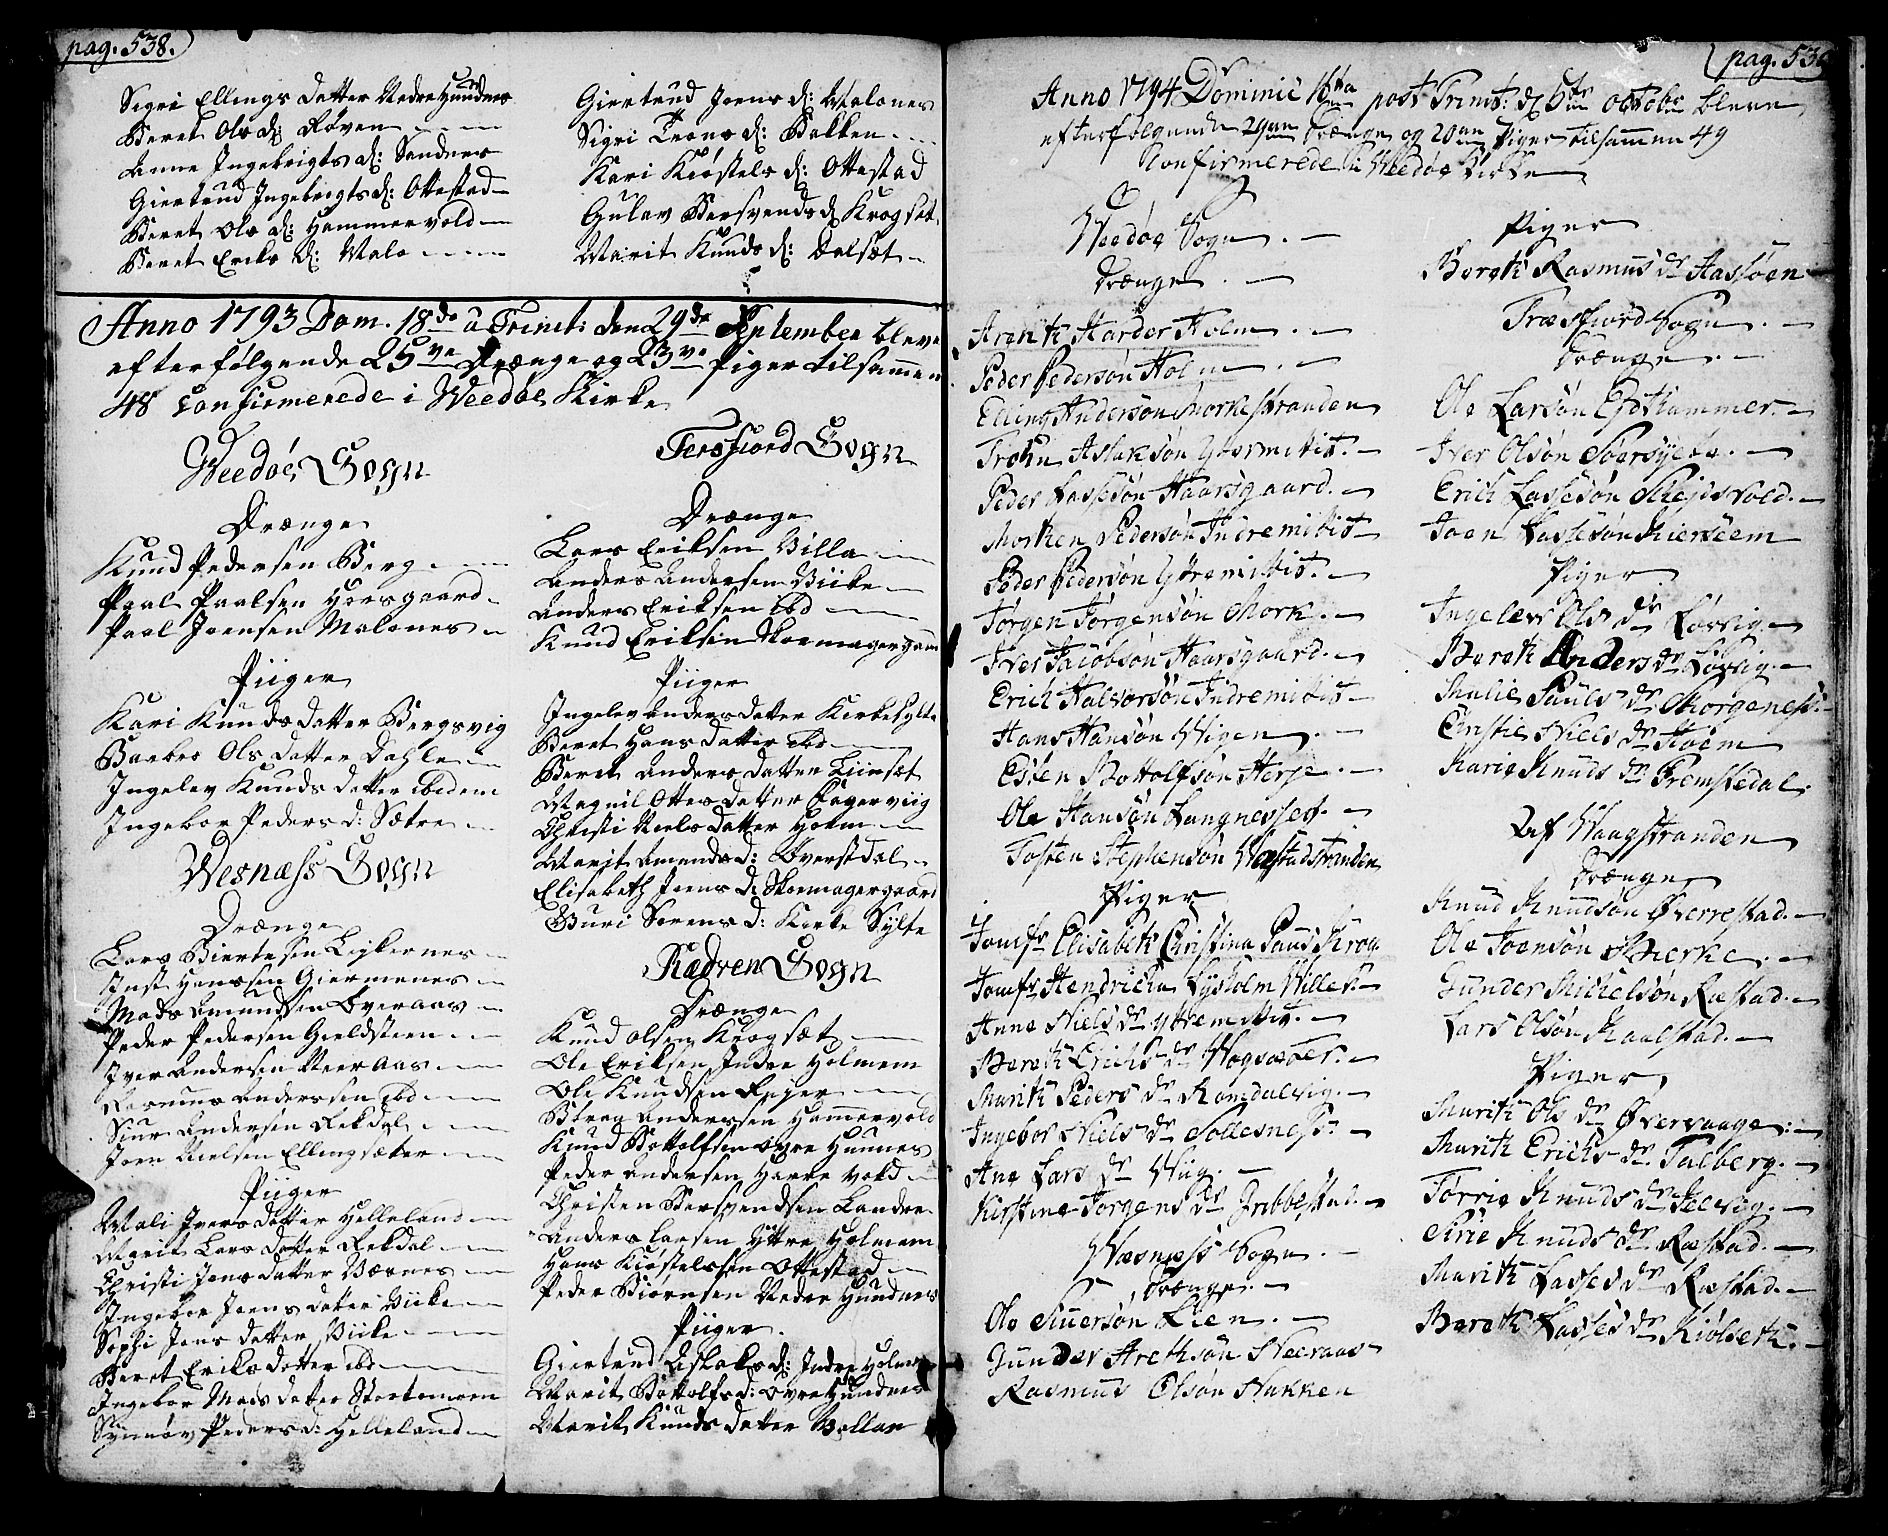 pag. 538.
Sigri Ellings datter Nedre Hundnes
Beret Ols d: Røven
Anne Ingebrigts d: Sandnes
Giertrud Ingebrigts d: Ottestad
Beret Ols d: Hammervold
Beret Eriks d: Male
Giertrud Joens d: Malones
Sigri Troens d: Bakken
Kari Kiøstels d: Ottestad
Gulav Bersvends d: Krogset
Marit Knuds d: Dalset
Anno 1793 Dom. 18de a Trinit: den 29de September bleve
efterfølgende 25ve Drænge og 23ve Piger tilsammen
48 confirmerede i Weedøe Kirke
Weedøe Sogn
Drænge
Knud Pedersen Berg
Paal Paalsen Horsgaard
Paal Joensen Malones
Piiger
Kari Knuds datter Bergsvig
Barbro Ols datter Dahle
Ingelev Knuds datter ibidem
Ingebor Peders d: Sætre
Wesnæss Sogn
Drænge
Lars Biertesen Ligkernes
Just Hanssen Giermenes
Mads Amundsen Overaas
Peder Pedersen Gieldsteen
Iver Andersen Neeraas
Rasmus Anderssen ibd
Siur Andersen Rekdal
Joen Nielsen Ellingsæter
Piiger
Mali Ivers datter Helleland
Marit Lars datter Rekdal
Christi Jens datter Vernes
Ingebor Joens datter Viike
Sophi Jens datter Viike
Beret Eriks datter ibd
Ingebor Mads datter Stortemoen
Synnøv Peders d: Helleland
Tersfiord Sogn
Drænge
Lars Eriksen Villa
Anders Andersen Viike
Anders Eriksen ibd
Knud Eriksen Skomagergaard
Piiger
Ingelev Anders datter Kirkesylte
Beret Hans datter ibd
Berit Anders datter Liinset
Magnil Ottes datter Fagerviig
Christi Niels datter Holm
Marit Amunds d: Øverstdal
Elisabeth Joens d: Skomagergaard
Guri Sørens d: Kirke Sylte
Rødven Sogn
Drænge
Knud Olsen Krogset
Ole Eriksen Indre Holmem
Ole Knudsen
Anderssen Hammervold
Knud Bottolfsen Øvre Hunnes
Peder Andersen Herre vold
Christen Bersvendsen
Anders Larsen Yttre Holmem
Hans Kiøstelsen Ottestad
Peder Biørnsen Nedre Hundnes
Piiger
Giertrud Aslaks d: Indre Holmem
Marit Bottolfs d: Øvre Hundnes
Marit Knuds datter Vollan
pag. 539
Anno 1794 Dominic 16ta post Trinit: d 5te octobr bleve
efterfølgende 29ve Drænge og 20ve Piger tilsammen 49
Confirmerede i Weedøe Kirke
Weedøe Sogn.
Drænge
Arenth Harder Holm.
Peder Pedersøn Holm.
Elling Andersøn Morkestranden
Trohn Aslaksøn Ytermittet.
Peder Lassesøn Haarsgaard.
Morten Pedersøn Indremittet
Peder Pedersøn Ytremittet.
Jørgen Jørgensøn Mork.
Iver Jacobsøn Haarsgaard.
Erich Halvorsøn Indremittet
Hans Hansøn Wigen.
Esten Bottolfsøn Herje.
Ole Hansøn Langnesset.
Tosten Stephensøn Westadstranden
Piger
Jomfr Elisabeth Christina Paus Krog
Jomfr Hendricha Lysholm Willes
Anne Niels dr Yttremittet.
Bereth Erichs dr Wogsæter.
Marith Peders dr Romdalsvig.
Ingebor Niels dr Sollesness.
Ane Lars dr Wiig.
Kirstine Jørgens dr Gribbestad.
Wesness Sogn.
Drænge.
Ole Siversøn Lien.
Gunder Arethsøn Neeraas
Rasmus Olsøn Hukken
Piger
Bereth Rasmus dr Aasløen
Træsfiord Sogn.
Drænge.
Ole Larsøn Eidhammer.
Iver Olsøn Søersylte.
Erich Lassesøn Skeidsvold.
Joen Lassesøn Kierseem
Piger
Ingelev Ols dr Løvvig.
Bereth Anders dr Løvvig.
Malie Pauls dr Thorgenes.
Christie Niels dr Hoem
Karie Knuds dr Fremstedal.
Af Waagstranden
Drænge
Knud Knudsøn Øverrestad.
Ole Joensøn Sherke.
Gunder Michelsøn Ræstad.
Lars Olsøn Maalstad.
Piger
Marith Ols dr Øvervaage.
Marith Erichs dr Talberg.
Tørrie Knuds dr Selvig.
Sirie Knuds dr Ræstad.
Marith Lasses dr Ræstad.
Bereth Lasses dr Kiølseth.